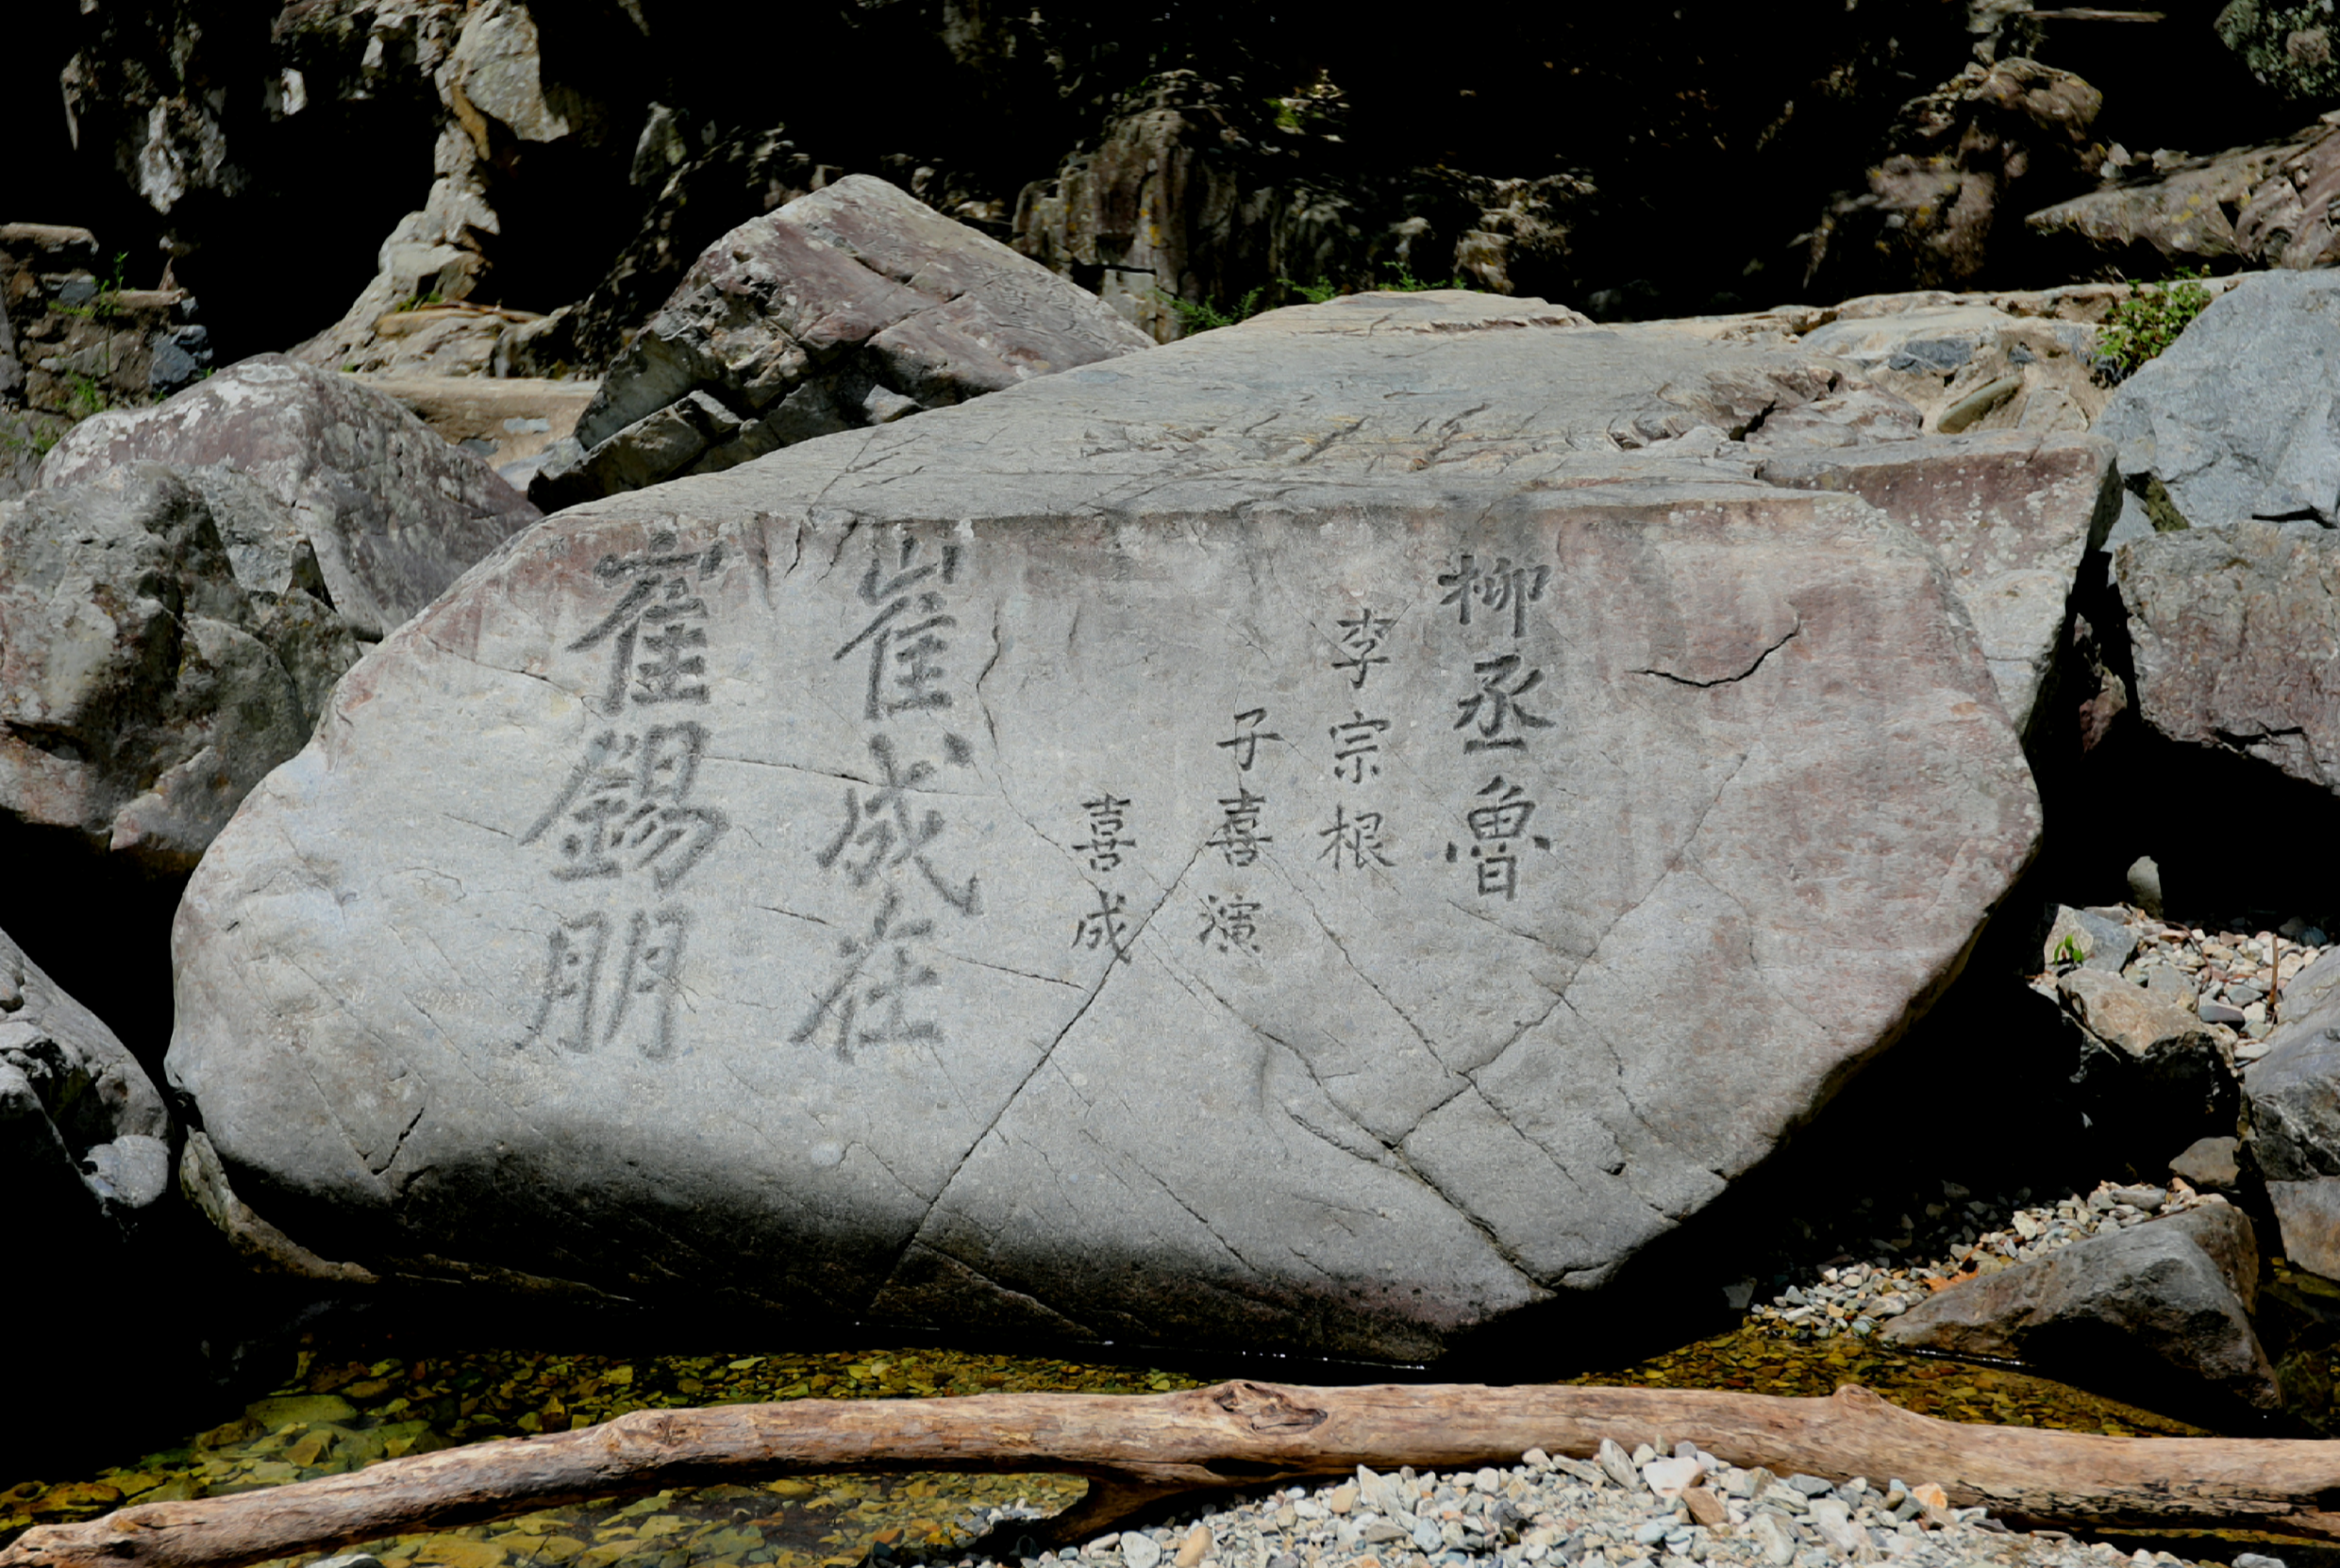 柳丞魯
李宗根
子喜演
喜成
崔成在
崔錫朋